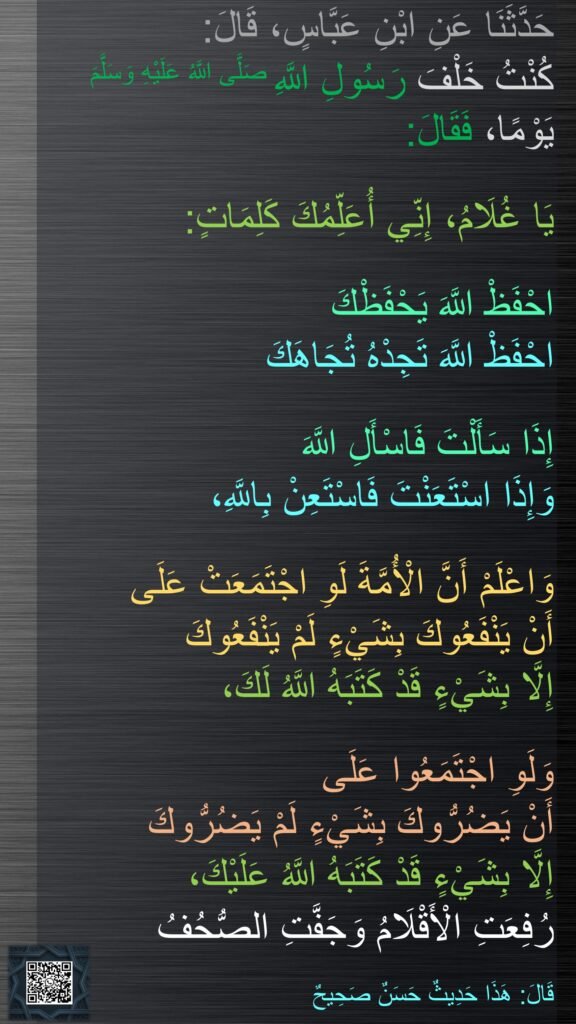 حَدَّثَنَا عَنِ ابْنِ عَبَّاسٍ، قَالَ:
كُنْتُ خَلْفَ رَسُولِ اللَّهِ صَلَّى اللَّهُ عَلَيْهِ وَسَلَّمَ
يَوْمًا، فَقَالَ:
يَا غُلَامُ، إِنِّي أُعَلِّمُكَ كَلِمَاتٍ:
احْفَظْ اللَّهَ يَحْفَظْكَ
احْفَظْ اللَّهَ تَجِدْهُ تُجَاهَكَ
إِذَا سَأَلْتَ فَاسْأَلِ اللَّهَ
وَإِذَا اسْتَعَنْتَ فَاسْتَعِنْ بِاللَّهِ،
وَاعْلَمْ أَنَّ الْأُمَّةَ لَوِ اجْتَمَعَتْ عَلَى
أَنْ يَنْفَعُوكَ بِشَيْءٍ لَمْ يَنْفَعُوكَ
إِلَّا بِشَيْءٍ قَدْ كَتَبَهُ اللَّهُ لَكَ،
وَلَوِ اجْتَمَعُوا عَلَى
أَنْ يَضُرُّوكَ بِشَيْءٍ لَمْ يَضُرُّوكَ
إِلَّا بِشَيْءٍ قَدْ كَتَبَهُ اللَّهُ عَلَيْكَ،
رُفِعَتِ الْأَقْلَامُ وَجَفَّتِ الصُّحُفُ
قَالَ: هَذَا حَدِيثٌ حَسَنٌ صَحِيحٌ